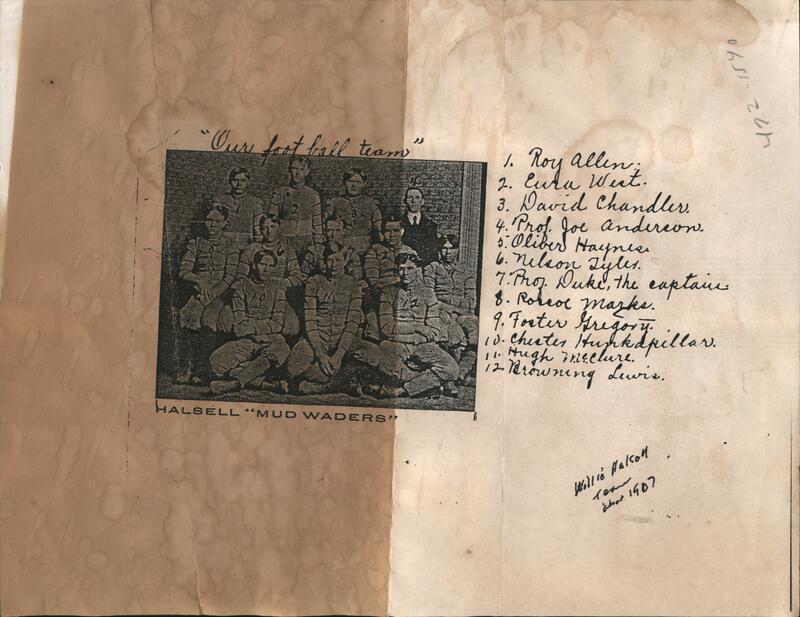 "Our foot ball team"
HALSELL "MUD WADERS"
1. Roy Allen.
2. Eura West.
3. David Chandler.
4. Prof. Joe Anderson.
5. Oliber Haynes.
6. Nelson Tyler.
7. Prof. Duke, the captain
8. Roscoe Marks.
9. Foster Gregory.
10. Chester Hunkapillar.
11. Hugh McClure.
12. Browning Lewis.
Willie
Team
about 1907